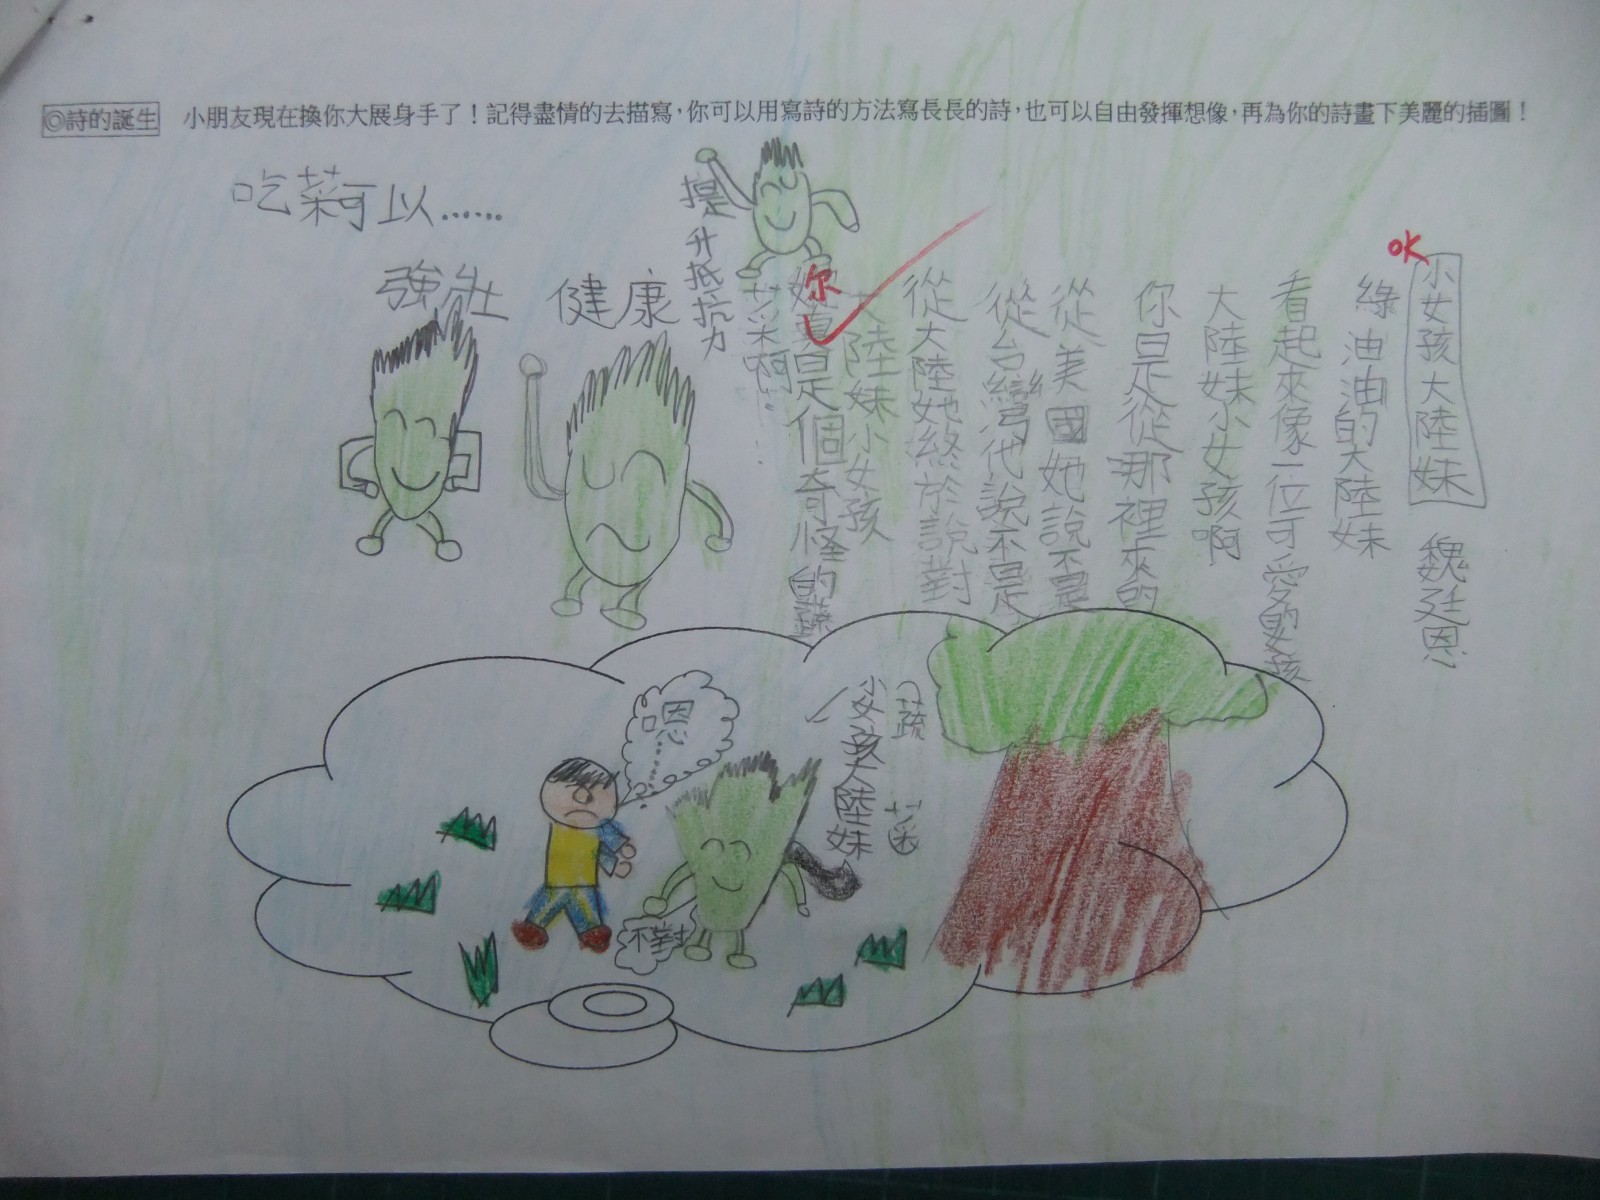 ◎詩的誕生 小朋友現在換你大展身手了！記得盡情的去描寫，你可以用寫詩的方法寫長長的詩，也可以自由發揮想像，再為你的詩畫下美麗的插圖！
OK
小女孩大陸妹 魏廷恩
綠油油的大陸妹
看起來像一位可愛的女孩
大陸妹小女孩啊
你是從那裡來的
從美國她說不是
從台灣代說不是
從大陸她終於說對
大陸妹小女孩
你
她真是個奇怪的蔬
菜啊…
吃菜可以……
強壯
健康
提升抵抗力
嗯……
不對
小女孩大陸妹
蔬菜